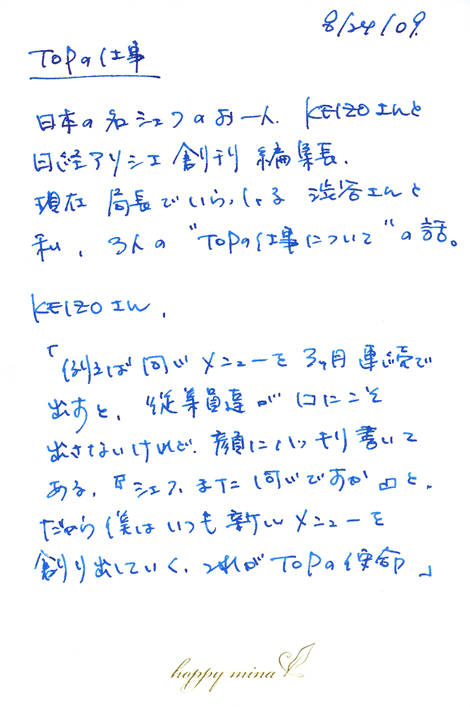 8/24/09.
TOPの仕事
日本の名シェフのお一人、KEIZOさんと
日経アソシエ創刊編集長、
現在 局長でいらっしゃる 渋谷さんと
私、3人の "TOPの仕事について" の話。
KEIZOさん、
「例えば同じメニューを3ヶ月連続で
出すと、従業員達が口にこそ
出さないけれど、顔にハッキリ書いて
ある、『シェフ、また同じですか』と、
だから僕はいつも新しいメニューを
創り出していく、それがTOPの使命」
happy mina